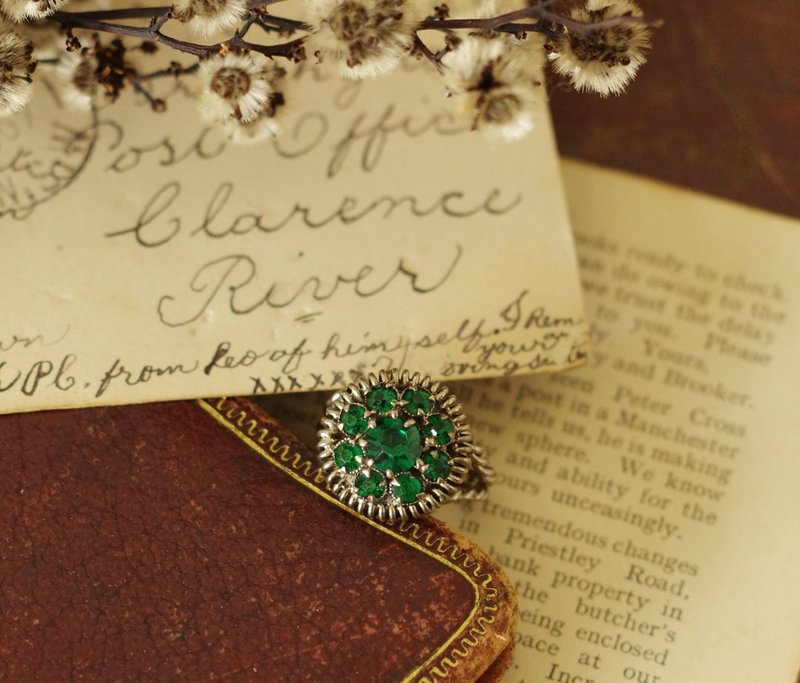 Post Offic
Clarence
River
Pl. from Leo of himself. I Rem
xxxxx
yours
oving
ooks ready to check.
sh do owing to the
trust the delay
to you. Please
Years,
y and Brooker.
en Peter Cross
post in a Manchester
he tells us, he is making
ew sphere. We know
and ability for the
ours unceasingly.
tremendous changes
in Priestley Road,
bank property in
the butcher's
being enclosed
pace at our
Incr